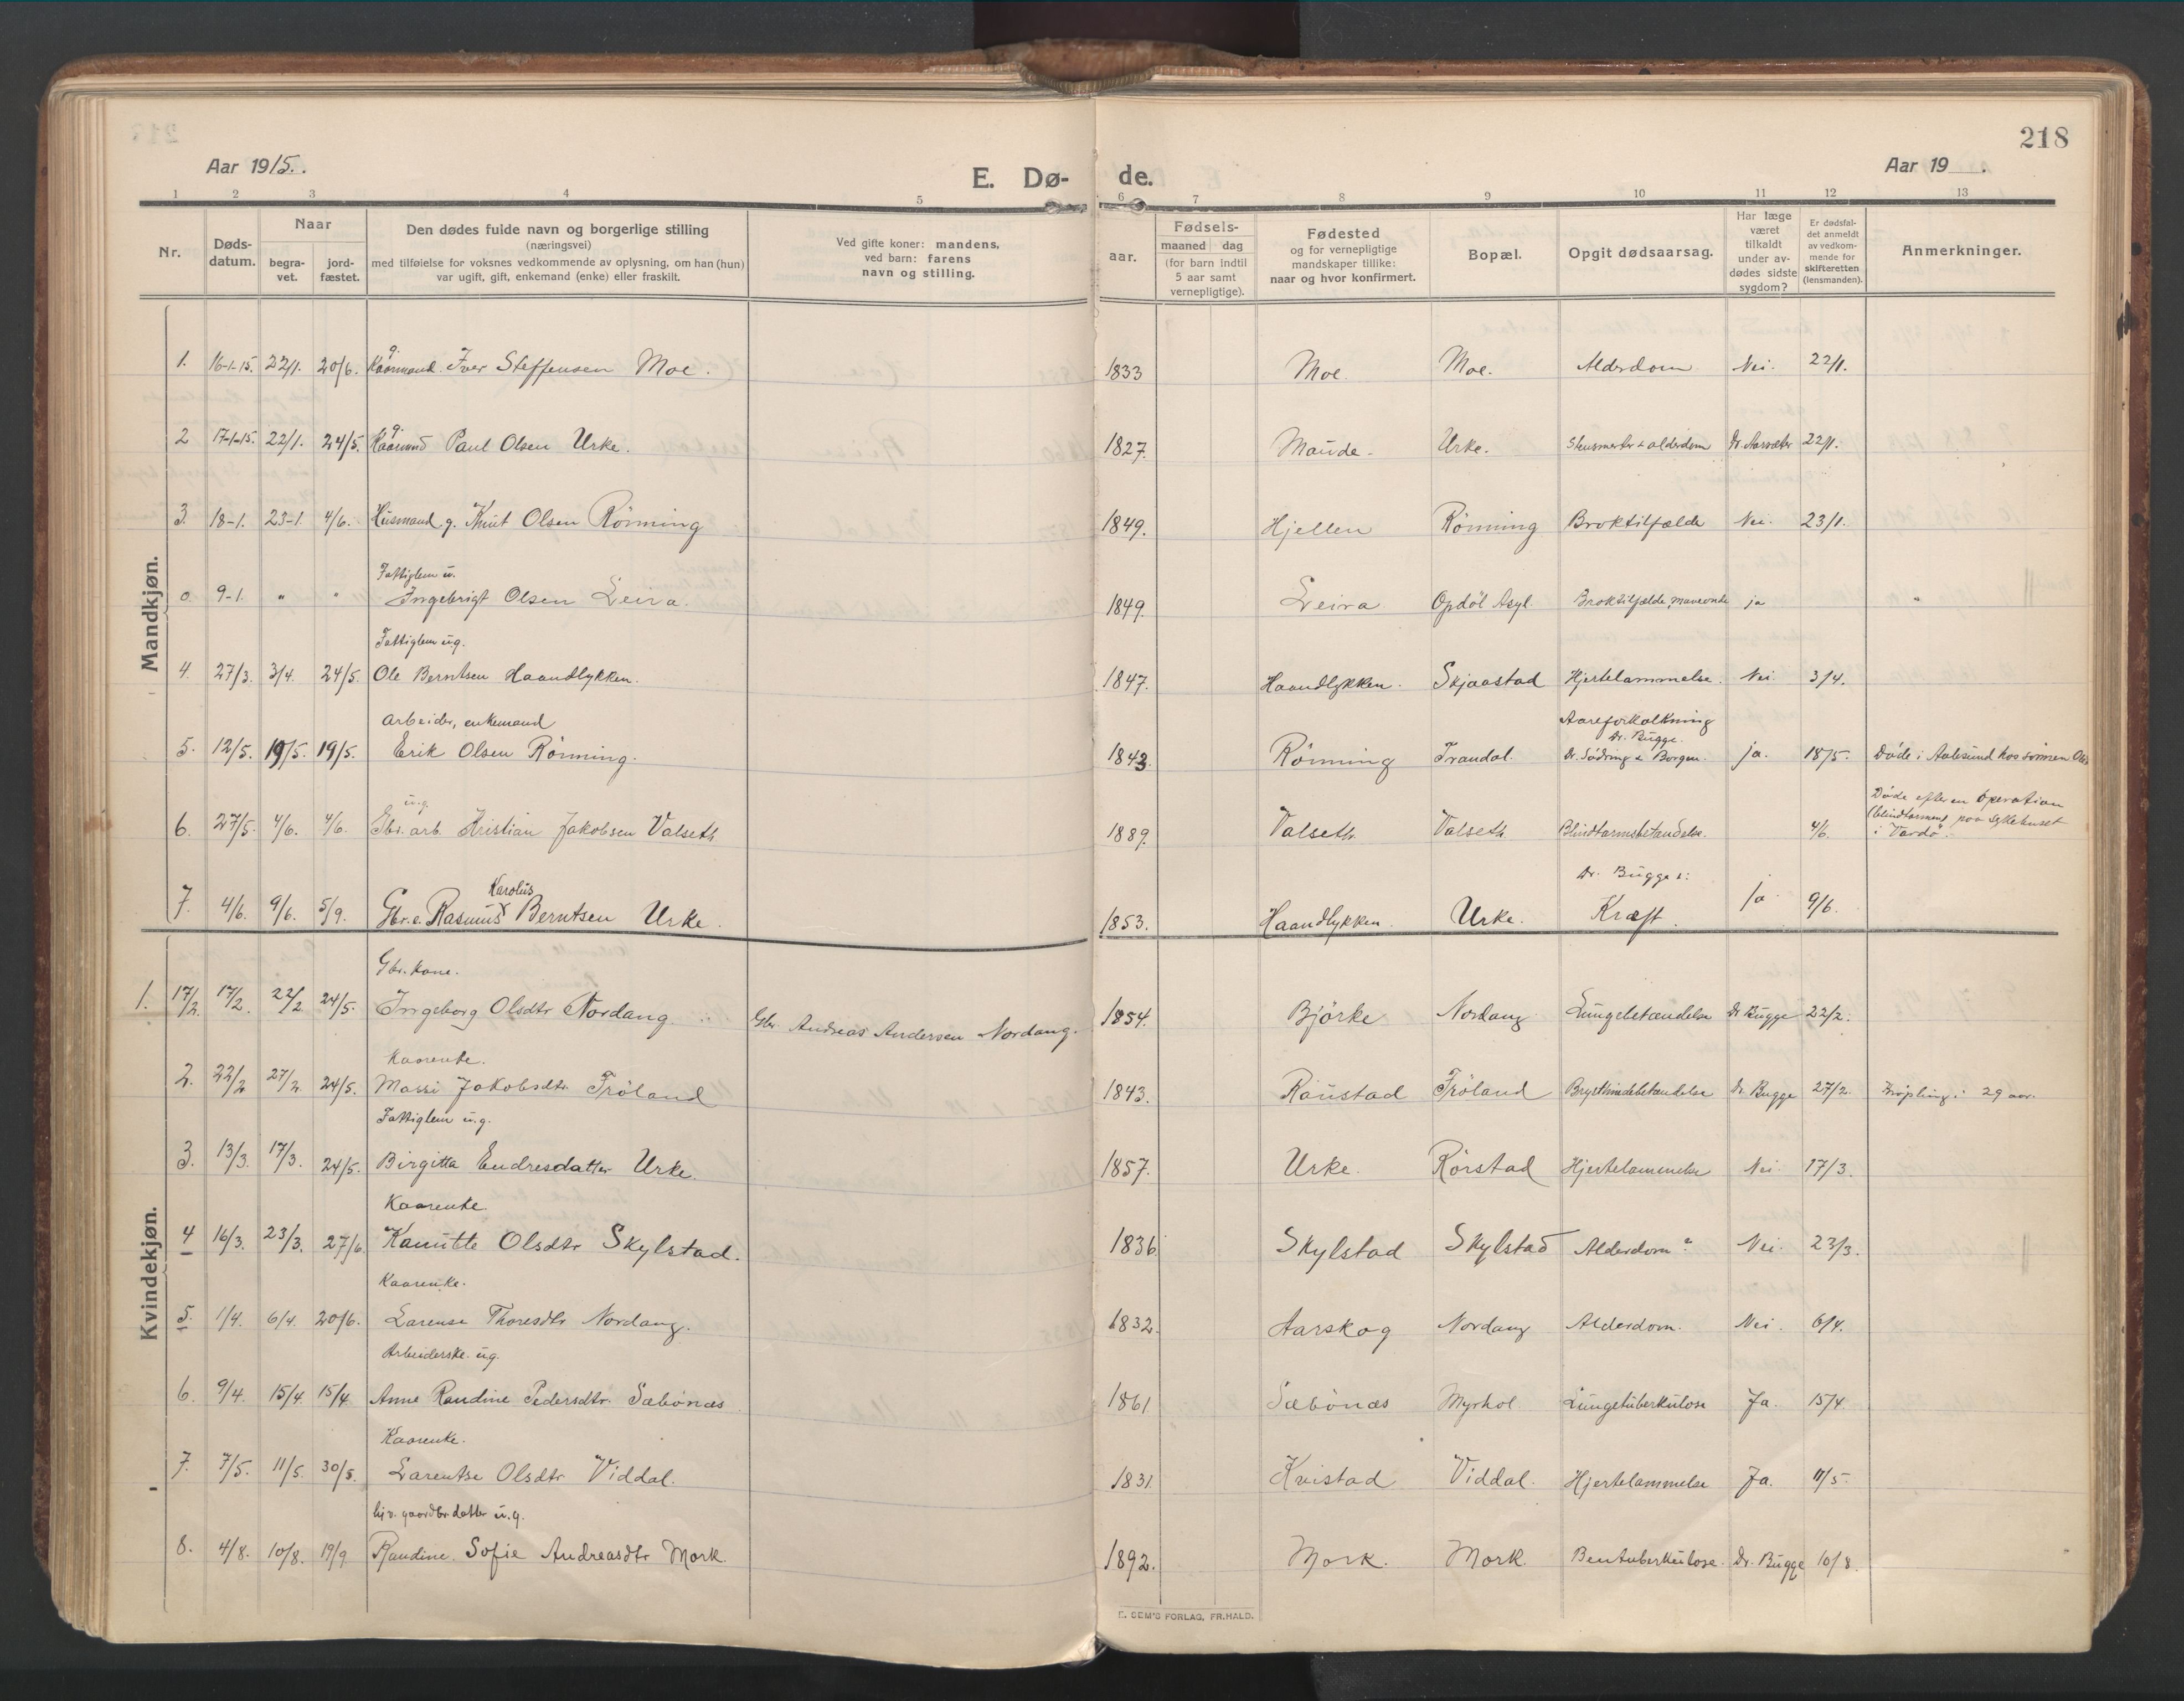 218
Aar 1915. E. Dø- de. Aar 19 .
1 2 3 4 5 6 7 8 9 10 11 12 13
Nr. Døds-datum. Naar begra-vet. jord-fæstet. Den dødes fulde navn og borgerlige stilling (næringsvei) med tilføielse for voksnes vedkommende av oplysning, om han (hun) var ugift, gift, enkemand (enke) eller fraskilt. Ved gifte koner: mandens, ved barn: farens navn og stilling. aar. Fødsels- maaned dag (for barn indtil 5 aar samt vernepligtige). Fødested og for vernepligtige mandskaper tillike: naar og hvor konfirmert. Bopæl. Opgit dødsaarsag. Har læge været tilkaldt under av-dødes sidste sygdom? Er dødsfal-det anmeldt av vedkom-mende for skifteretten (lensmanden). Anmerkninger.
Mandkjøn.
g.
1. 16-1-15. 22/1. 20/6. Kaarmand. Iver Steffensen Moe. 1833 Moe. Moe. Alderdom Nei. 22/1.
g.
2 17-1-15. 22/1. 24/5. Kaarmand Paul Olsen Urke. 1827. Maude. Urke. alderdom Dr. 22/1.
3. 18-1. 23-1. 4/6. Husmand. g. Knut Olsen Rönning 1849. Hjellen Rönning Broktilfælde Nei. 23/1.
Fattiglem u.
0. 9-1. " " Ingebrigt Olsen Leira. 1849. Leira. Opdöl Asyl. Broktilfælde, maveonde ja "
Fattiglem u.g.
4. 27/3. 3/4. 24/5. Ole Berntsen Haandlykken. 1847. Haandlykken. Skjaastad Hjertelammelse. Nei. 3/4.
Arbeider, enkemand Aareforkalkning
Dr. Bugge.
5. 12/5. 19/5. 19/5. Erik Olsen Rönning. 1843. Rönning Trandal. Dr. Södring & Borgen. ja. 18/5. Döde i Aalesund hos sönnen Ole
u.g. Döde efter en operation
6. 27/5. 4/6. 4/6. Gbr. arb. Kristian Jakobsen Valseth 1889. Valseth. Valseth Blindtarmsbetændelse. 4/6. (blindtarmen) paa sykehuset
i "Vardö".
Karolus Dr. Bugge
7. 4/6. 9/6. 5/9. Gbr. e. Rasmus x Berntsen Urke. 1853. Haandlykken. Urke. Kræft. ja 9/6.
Kvindekjøn.
Gbr. kone.
1. 17/2. 17/2. 22/2 24/5. Ingeborg Olsdtr Nordang. Gbr. Andreas Andersen Nordang. 1854. Björke Nordang Lungebetændelse Dr Bugge 22/2.
Kaarenke.
2. 22/2 27/2. 24/5. Massi Jakobsdtr. Tröland 1843. Raustad Tröland Brysthindebetændelse Dr. Bugge 27/2. Kröpling i 29 aar.
Fattiglem u.g.
3. 13/3. 17/3. 24/5. Birgitta Endresdatter Urke. 1857. Urke. Rörstad Hjertelammelse Nei. 17/3.
Kaarenke
4 16/3. 23/3. 27/6. Kanutte Olsdtr Skylstad. 1836. Skylstad Skylstad Alderdom? Nei. 23/3.
Kaarenke.
5. 1/4. 6/4. 20/6. Larense Thoresdtr Nordang. 1832. Aarskog Nordang Alderdom. Nei. 6/4.
Arbeiderske. ug.
6. 9/4. 15/4 15/4 Anne Randine Pedersdtr. Sæbönæs 1861 Sæbönæs Myrhol Lungetuberkulose Ja. 15/4.
Kaarenke.
7. 7/5. 11/5. 30/5. Larentse Olsdtr Viddal. 1831. Kvistad Viddal. Hjertelammelse Ja. 11/5.
gaardbr. datter u.g.
8. 4/8. 10/8. 19/9 Randine. Sofie Andreasdtr Mork. 1892. Mork. Mork. Bentuberkulose. Dr. Bugge 10/8.
E. SEM'S FORLAG, FR.HALD.